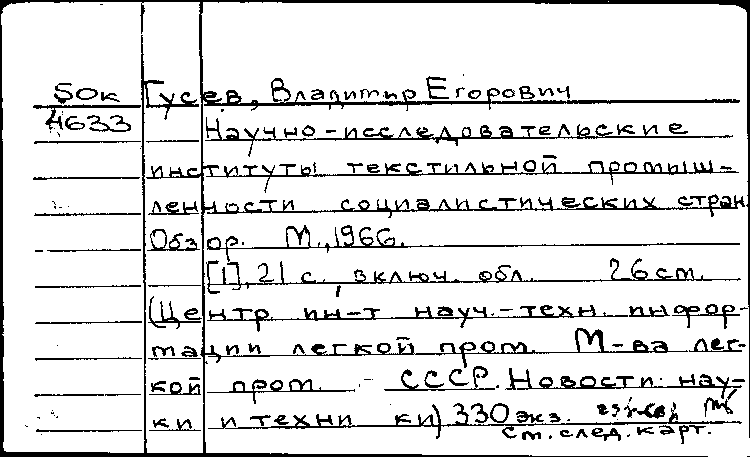 50к Гусев, Владимир Егорович
4633 Научно-исследовательские
институты текстильной промыш-
ленности социалистических стран.
Обзор. М., 1966.
[1], 21 с., включ. обл. 26 см.
(Центр. ин-т науч.-техн. инфор-
мации легкой пром. М-ва лег-
кой пром. СССР. Новости нау-
ки и техники) 330 экз.
см. след. карт.